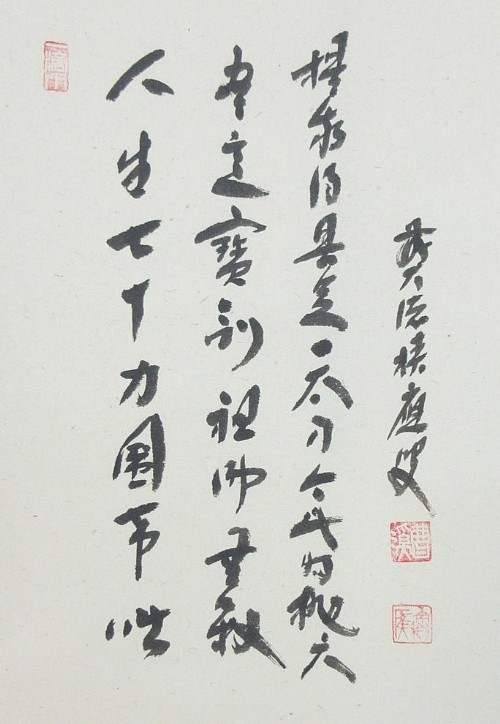 人生七十力圍希咄
吾這寶剣祖佛共殺
提我得具足一太刀今此時抛天
前大徳積應叟